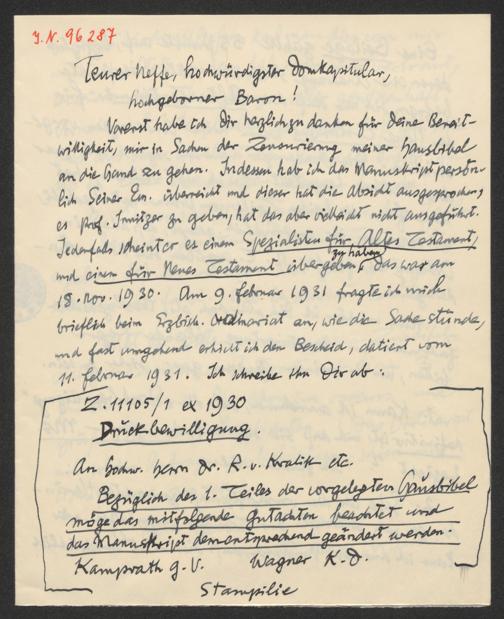 J.N. 96287
Teurer Neffe, hochwürdigster Domkapitular,
hochgeborner Baron!
Vorerst habe ich Dir herzlich zu danken für Deine Bereit-
willigkeit, mir in Sachen der Zensurierung meiner Hausbibel
an die Hand zu gehen. Indessen hab ich das Manuskript persön-
lich Seiner Em. überreicht und dieser hat die Absicht ausgesprochen,
es Prof. Innitzer zu geben, hat das aber vielleicht nicht ausgeführt.
Jedenfalls scheint er es einem Spezialisten für Altes Testament,
und einem für Neues Testament übergeben zu haben, das war am
18. Nov. 1930. Am 9. Februar 1931 fragte ich mich
brieflich beim Erzbich. Ordinariat an, wie die Sache stünde,
und fast umgehend erhielt ich den Bescheid, datiert vom
11. Februar 1931. Ich schreibe ihn Dir ab:
Z. 11105/1 ex 1930
Druckbewilligung.
An Hochw. Herrn Dr. R. v. Kralik etc.
Bezüglich des 1. Teiles der vorgelegten Hausbibel
möge das mitfolgende Gutachten beachtet und
das Manuskript dementsprechend geändert werden.
Kamprath g. V. Wagner K. D.
Stampilie